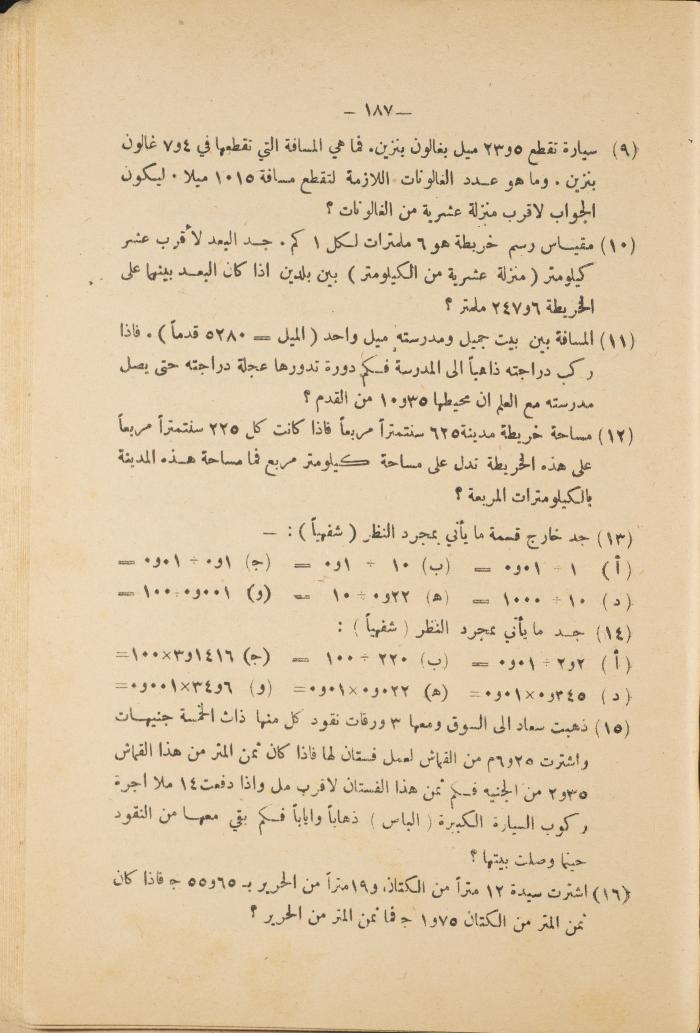 — ١٨٧ —
(٩) سيارة تقطع ٥و٢٣ ميل بغالون بنزين. فما هي المسافة التي تقطعها في ٤و٧ غالون
بنزين . وما هو عدد الغالونات اللازمة لتقطع مسافة ١٠١٥ ميلا . ليكون
الجواب لاقرب منزلة عشرية من الغالونات ؟
(١٠) مقياس رسم خريطة هو ٦ ملمترات لكل ١ كم . جد البعد لأقرب عشر
كيلومتر ( منزلة عشرية من الكيلومتر ) بين بلدين اذا كان البعد بينهما على
الخريطة ٦و٢٤٧ ملمتر ؟
(١١) المسافة بين بيت جميل ومدرسته ميل واحد ( الميل = ٥٢٨٠ قدماً ) . فاذا
ركب دراجته ذاهباً الى المدرسة فكم دورة تدورها عجلة دراجته حتى يصل
مدرسته مع العلم ان محيطها ٣٥و١٠ من القدم ؟
(١٢) مساحة خريطة مدينة ٦٢٥ سنتمتراً مربعاً فاذا كانت كل ٢٢٥ سنتمتراً مربعاً
على هذه الخريطة تدل على مساحة كيلومتر مربع فما مساحة هذه المدينة
بالكيلومترات المربعة ؟
(١٣) جد خارج قسمة ما يأتي بمجرد النظر ( شفهياً ) : —
(أ) ١ ÷ ٠١و٠ = (ب) ١٠ ÷ ١و٠ = (ج) ١و٠ ÷ ٠١و٠ =
(د) ١٠ ÷ ١٠٠٠ = (ه) ٢٢و٠ ÷ ١٠ = (و) ٠٠١و٠ ÷ ١٠٠ =
(١٤) جد ما يأتي بمجرد النظر ( شفهياً ) :
(أ) ٢و٢ ÷ ٠١و٠ = (ب) ٢٢٠ ÷ ١٠٠ = (ج) ١٤١٦و٣×١٠٠=
(د) ٣٤٥و٠×٠١و٠= (ه) ٠٢٢و٠×٠١و٠= (و) ٦و٣٤×٠٠١و٠=
(١٥) ذهبت سعاد الى السوق ومعها ٣ ورقات نقود كل منها ذات الخمسة جنيهات
واشترت ٢٥و٦م من القماش لعمل فستان لها فاذا كان ثمن المتر من هذا القماش
٣٥و٢ من الجنيه فكم ثمن هذا الفستان لاقرب مل واذا دفعت ١٤ ملا اجرة
ركوب السيارة الكبيرة ( الباس ) ذهاباً واياباً فكم بقي معها من النقود
حينما وصلت بيتها ؟
(١٦) اشترت سيدة ١٢ متراً من الكتان، و١٩متراً من الحرير بـ ٦٥و٥٥ ج فاذا كان
ثمن المتر من الكتان ٧٥و١ ج فما ثمن المتر من الحرير ؟